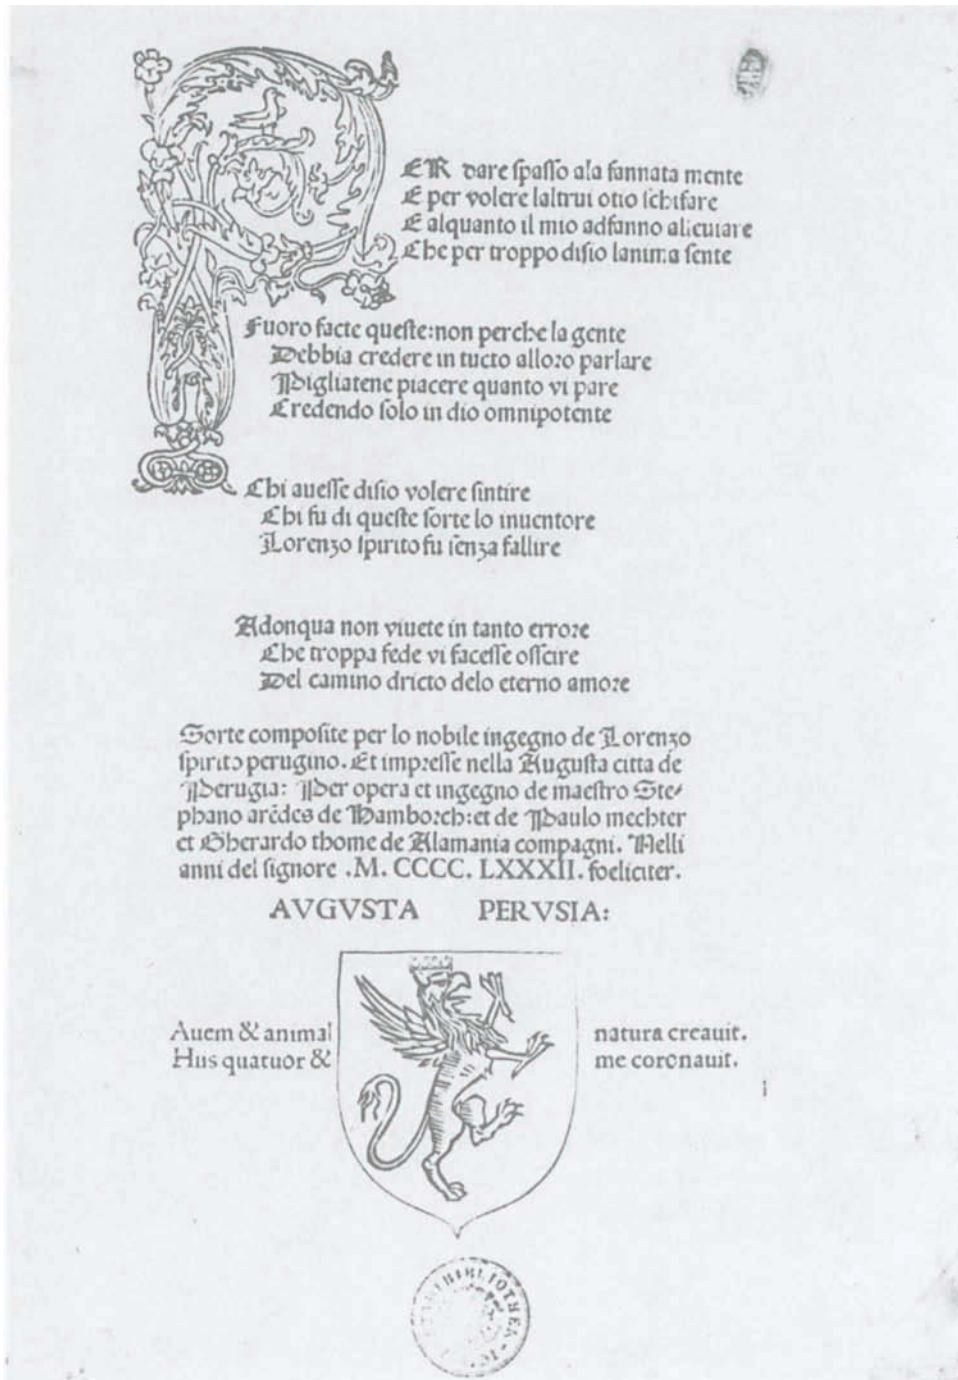 PER dare spasso ala fannata mente
E per volere laltrui otio schifare
E alquanto il mio adfanno aleuiare
Che per troppo disio lanima sente
Fuoro facte queste:non perche la gente
Debbia credere in tucto alloro parlare
Pigliatene piacere quanto vi pare
Credendo solo in dio omnipotente
Chi auesse disio volere sintire
Chi fu di queste sorte lo inuentore
Lorenzo spirito fu senza fallire
Adonqua non viuete in tanto errore
Che troppa fede vi facesse oscire
Del camino dricto delo eterno amore
Sorte composite per lo nobile ingegno de Lorenzo
spirito perugino. Et impresse nella Augusta citta de
Perugia: Per opera et ingegno de maestro Ste/
phano arēdes de Hamborch:et de Paulo mechter
et Gherardo thome de Alamania compagni. Nelli
anni del signore .M. CCCC. LXXXII. foeliciter.
AVGVSTA PERVSIA:
Auem & animal natura creauit.
Hus quatuor & me coronauit.
i
BIBLIOTHEK